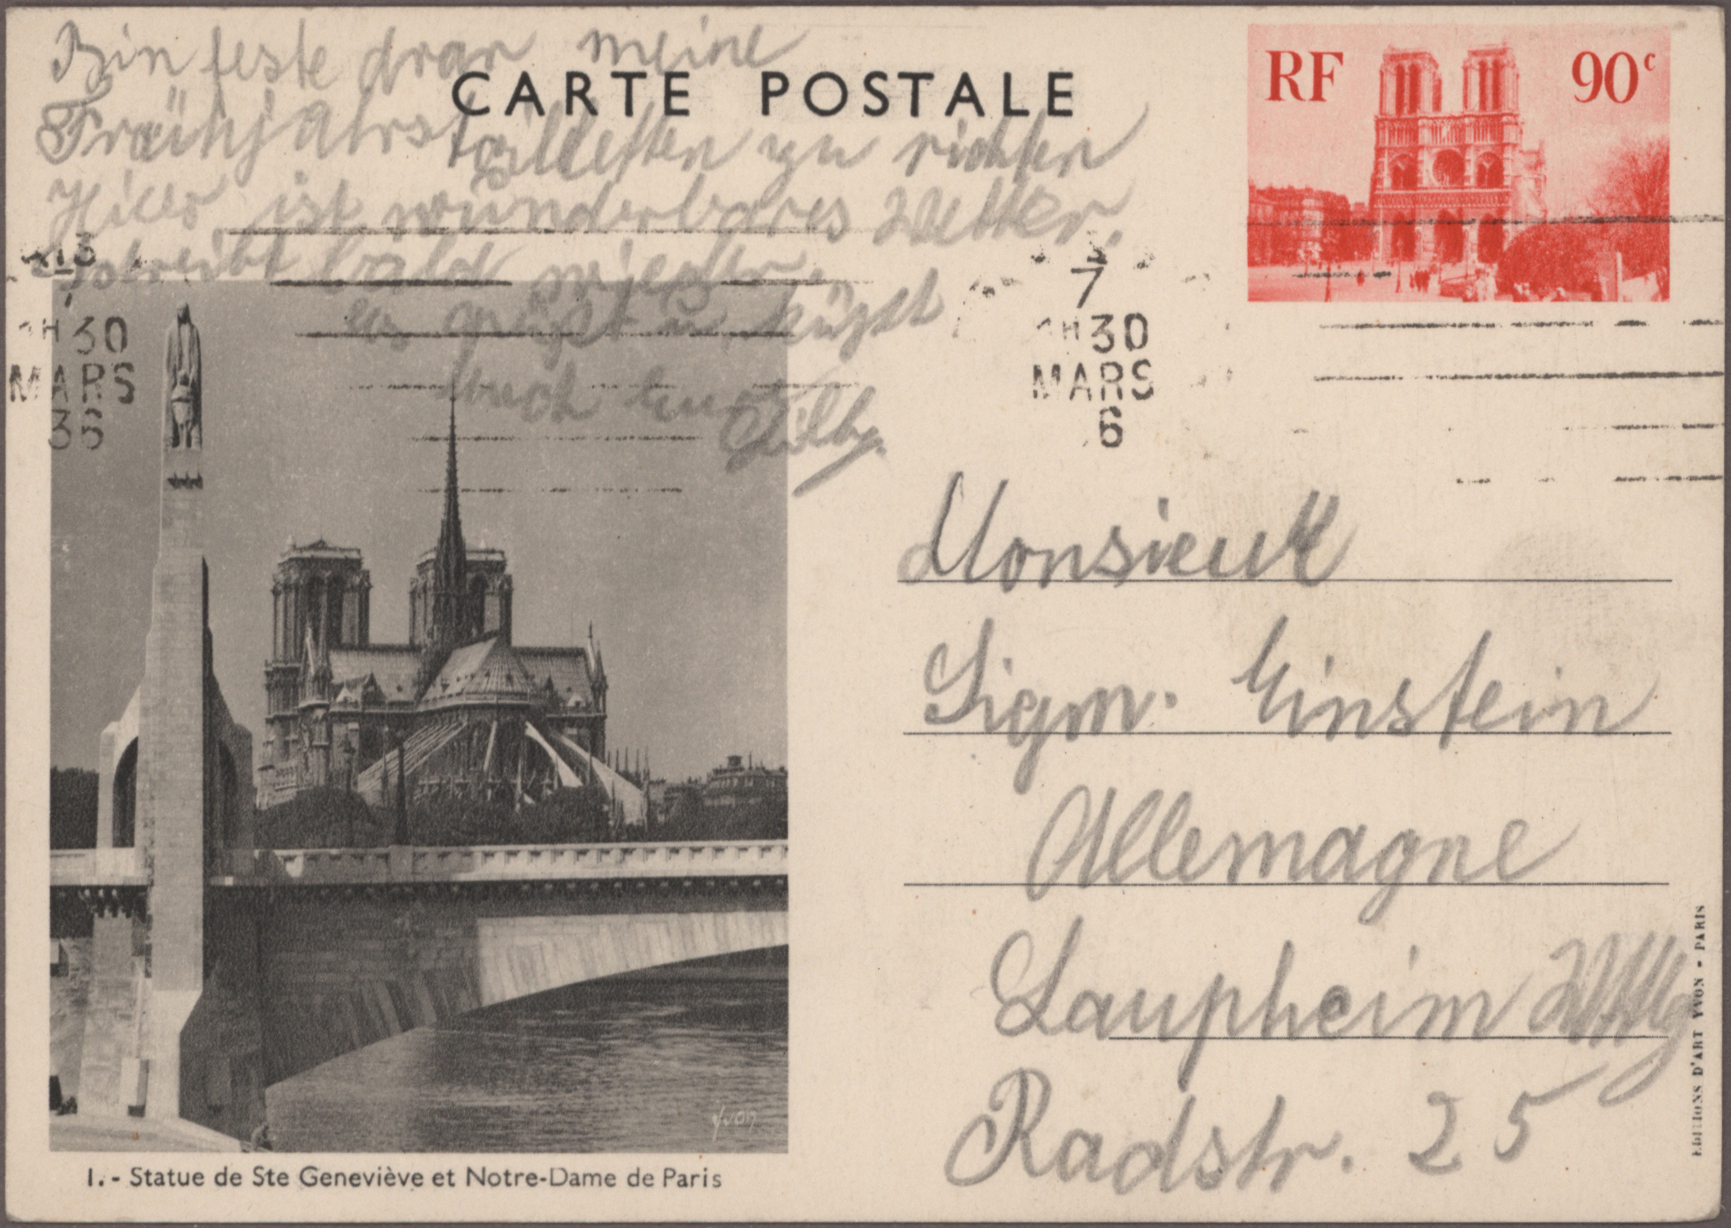 Bin feste dran meine
CARTE POSTALE
RF 90c
Frühjahrstoiletten zu richten
Hier ist wunderbares Wetter.
Schreibt bald wieder.
es grüßt u. küßt
Euch Eure
13
7
H 30
MARS
36
7
H 30
MARS
6
Monsieur
Sigm. Einstein
Allemagne
Laupheim Wttbg
Radstr. 25
Yvon
1. - Statue de Ste Geneviève et Notre-Dame de Paris
EDITIONS D'ART YVON - PARIS